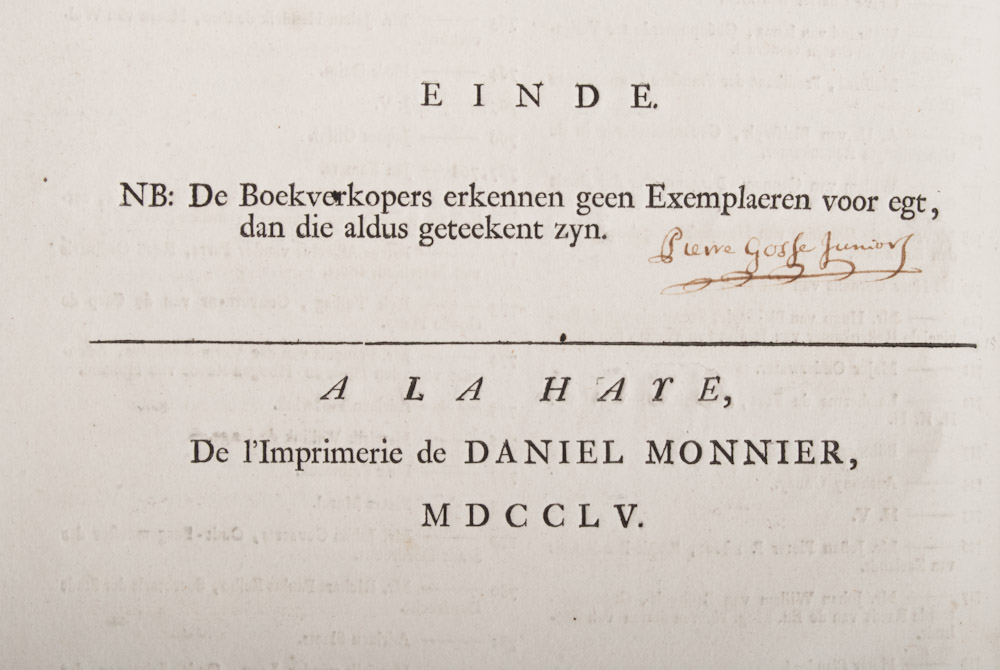 EINDE.
NB: De Boekverkopers erkennen geen Exemplaeren voor egt,
dan die aldus geteekent zyn.
Pierre Gosse Junior
A LA HAYE,
De l'Imprimerie de DANIEL MONNIER,
MDCCLV.